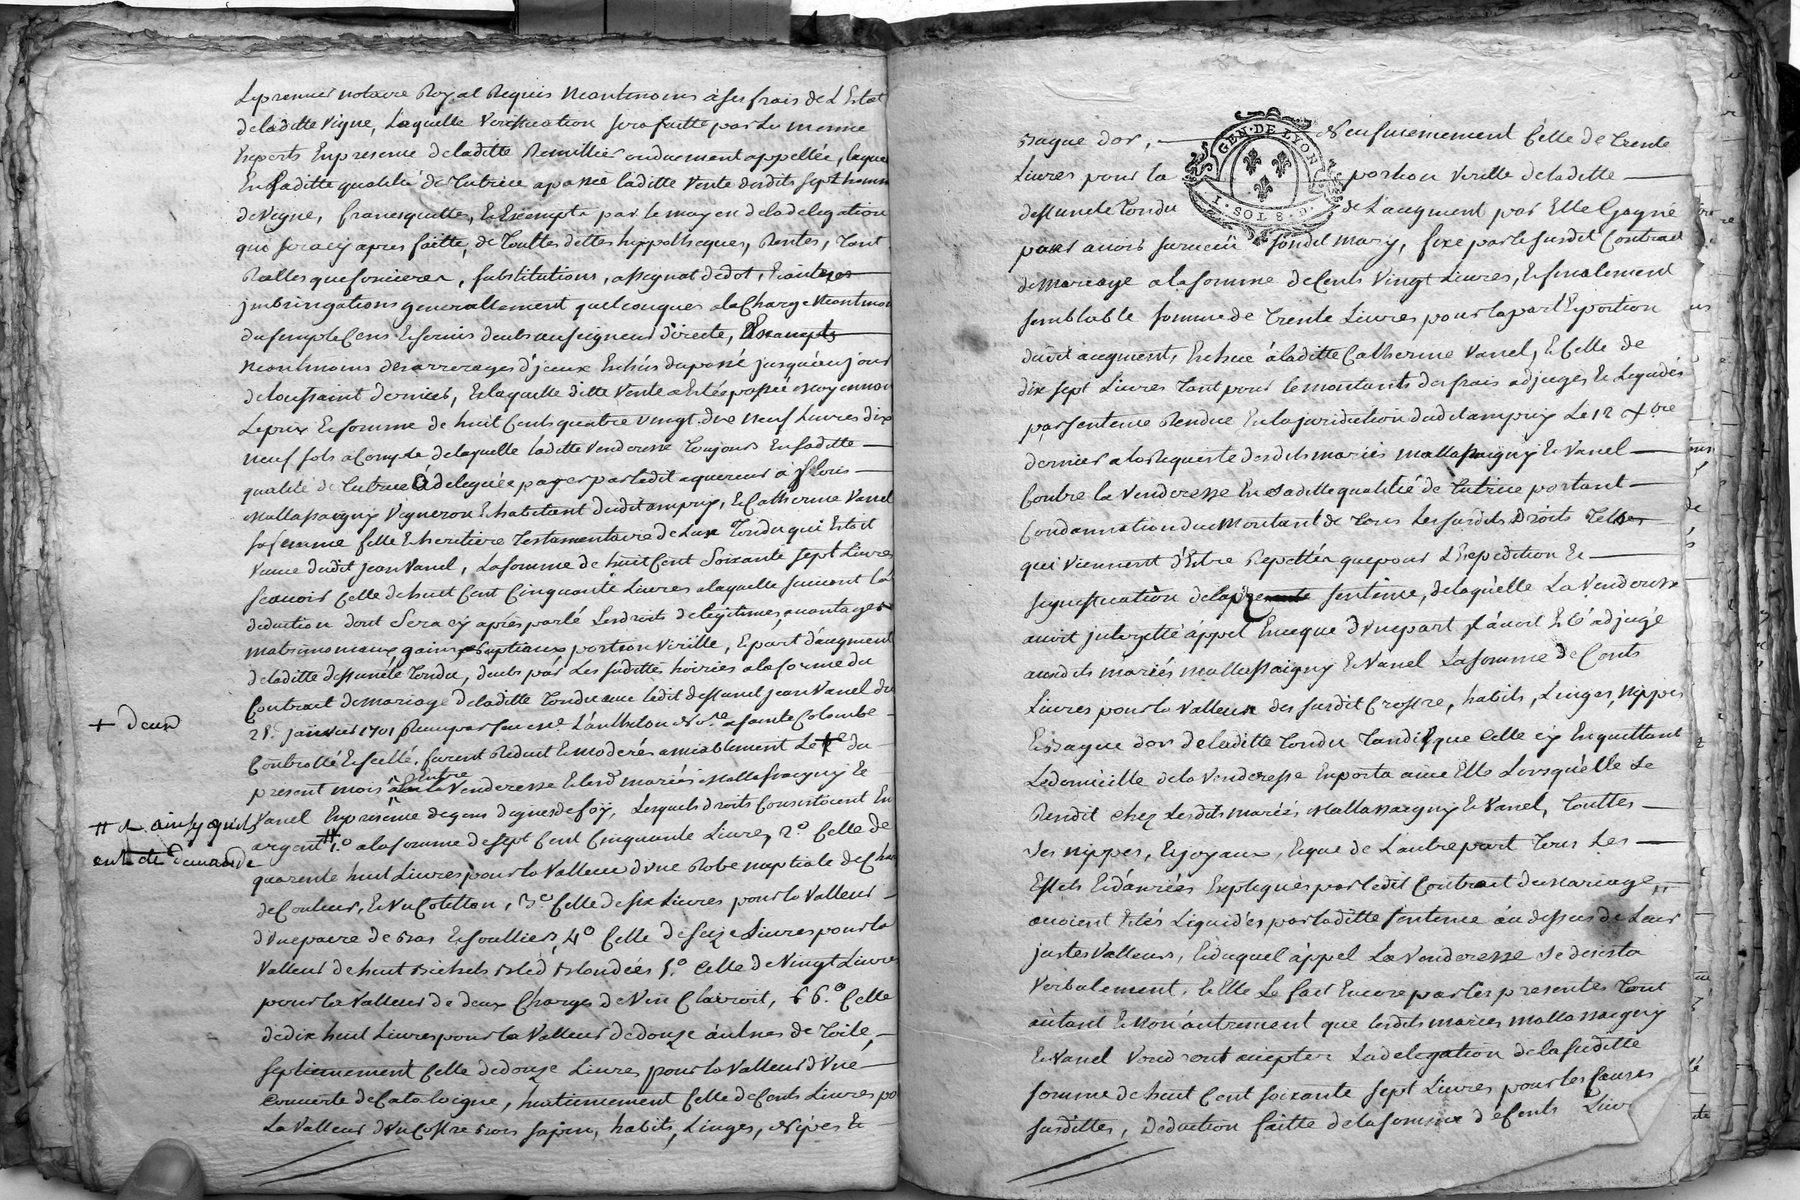 Le premier notaire Royal Requis Neantmoins à ses frais de L'Estat
de laditte Vigne, Laquelle Veriffication sera faitte par Les mesme
Experts En presence de laditte Remillier ou duement appellée, laquelle
En saditte qualité de Tutrice a passé laditte Vente desdits sept homme
de Vigne, franc quitte, & Exempte par le moyen de la delegation
qui sera cy apres faitte, de Touttes dettes hyppotheques, Rentes, Tant
Reelles que foncieres, substitutions, assignat de dot, & autres
jmbringations generallement quelconques a la Charge Neantmoins
du simple Cens & servis deubs au seigneur directe, & Exempts
Neantmoins des arrerages d'jceux Echus du passé jusqu'au jour
de toussaint dernier, & laquelle ditte Vente a Esté passée Moyennant
Le prix & somme de huit Cents quatre vingt dix neuf Livres dix
neuf sols a Compte de laquelle laditte Venderesse Toujours En saditte
qualité de Tutrice a delegué a payer par ledit aquereur à Louis
Mallassaigny Vigneron & habitant dudit ampuy, & Catherine Vanel
sa femme fille & heritiere Testamentaire de Tondu qui Estoit
Veuve dudit Jean Vanel, La somme de huit Cent soixante sept Livres
scavoir Celle de huit Cent Cinquante Livres a laquelle suivant la
deduction dont sera cy après parlé Les droits de legitimes, avantages
matrimoniaux gains nuptiaux portion Virille, & part d'augment
de laditte deffunte Tondu, deubs par Les suditte hoiries a la forme du
Contrait de Mariage de laditte Tondu avec ledit deffunt Jean Vanel du
28e. janvier 1701 Receu par feu Me. Lanthelon Nore. a sainte Colombe
Controllé & scellé, furent Reduit & moderés amiablement Le + du
+ deux
present mois Entre la Venderesse & lesd. mariés Mallassaigny &
Vanel En presence de gens dignes de foy, Lesquels droits Consistoient En
# ainsy qu'ils
argent # 1.° a la somme de sept Cent Cinquante Livres, 2.° Celle de
ont été demandé
quarente huit Livres pour la Valleur d'une Robe nuptiale de
de Couleur, & un Cotillon, 3.° Celle de six Livres pour la Valleur
d'une paire de bas & soulliers, 4.° Celle de seize Livres pour la
Valleur de huit bichets bled blondées 5.° Celle de Vingt Livres
pour la Valleur de deux Charges de Vin Clairoit, 6.° Celle
de dix huit Livres pour la Valleur de douze aulnes de Toile,
septiemement Celle de douze Livres pour la Valleur d'une
Couverte de Catalogne, huitiemement Celle de Cents Livres pour
La Valleur d'un Coffre bois sapin, habits, Linges, Nipes &
Bague d'or, Neufviemement Celle de Trente
Livres pour la portion Virille de laditte
deffuncte Tondu de L'augment par Elle Gagné
pour avoir survecü sondit mary, fixé par le susdit Contrait
de Mariage a la somme de Cents Vingt Livres, & finalement
semblable somme de Trente Livres pour la part & portion
dudit augment, Echue à laditte Catherine Vanel, & Celle de
dix sept Livres Tant pour le montant des frais adjugés & Liquidés
par sentence Rendue En la juridiction dudit ampuy Le 12 Xbre
dernier a la Requeste desdits mariés Mallassaigny & Vanel
Contre la Venderesse En saditte qualité de Tutrice portant
Condamnation du Montant de Tous Les susdits Droits Telles
qui viennent d'Estre Repettés que pour L'Expedition &
signiffication de la sentence, de laquelle La Venderesse
auroit jnterjetté appel En ce que d'une part Il avoit Eté adjugé
ausdits mariés Mallassaigny & Vanel La somme de Cents
Livres pour la Valleur des susdit Coffre, habits, Linges, Nippes
& Bague d'or de laditte Tondu Tandis que Celle cy En quittant
Le domicille de la Venderesse Emporta avec Elle Lorsqu'elle se
Rendit chez Lesdits mariés Mallassaigny & Vanel, Touttes
ses nippes, & joyaux, & que de L'autre part Tous Les
Effets & danrées Expliqués par ledit Contrait de Mariage,
avoient Etés Liquidés par laditte sentence au dessus de Leur
justes Valleurs, & duquel appel La Venderesse se desista
Verbalement. & Elle Le fait Encore par les presentes Tout
autant & Non autrement que lesdits mariés Mallassaigny
& Vanel Voudront accepter La delegation de la suditte
somme de huit Cent soixante sept Livres pour les Causes
susdittes, Deduction faitte de la somme de Cents Livres
GEN. DE LYON